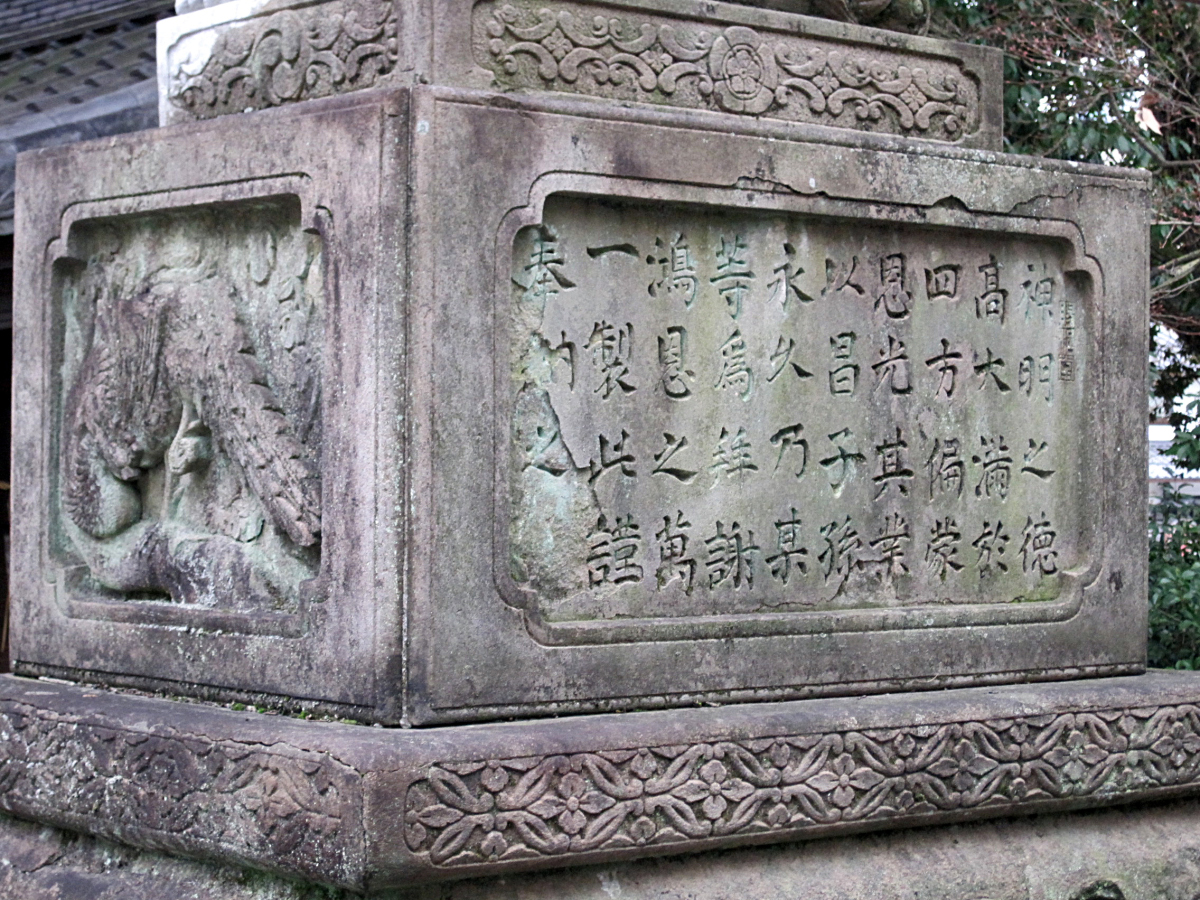 神明之徳
高大満於
四方偏蒙
恩光其業
以昌子孫
永久乃某
等爲拜謝
鴻恩之萬
一製此謹
奉納之